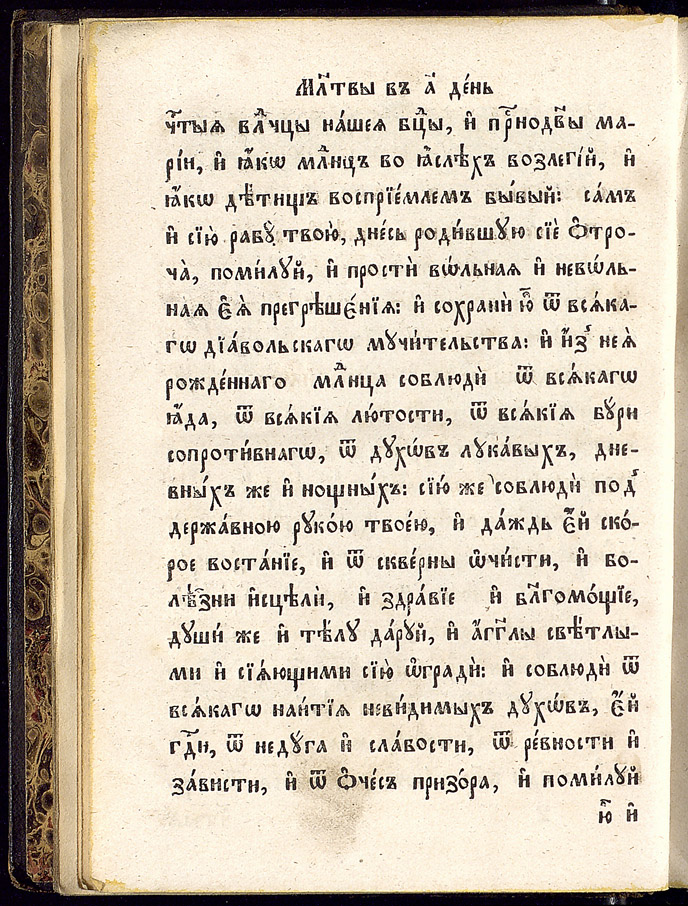 Мл҃твы въ а҃ де́нь
чⷭ҇тыѧ влⷣчцы на́шеѧ бцⷣы, и҆ прⷭ҇нодв҃ы ма-
рі́и, и҆ ꙗ҆́кѡ млⷣнцъ во ꙗ҆́слѣхъ возлегі́й, и҆
ꙗ҆́кѡ дѣ́тищъ воспрїе́млемъ бы́вый: са́мъ
и҆ сїю̀ рабꙋ̀ твою̀, дне́сь роди́вшꙋю сїѐ ѻ҆тро-
ча̀, поми́лꙋй, и҆ простѝ вѡ́льнаѧ и҆ невѡ́ль-
наѧ є҆ѧ̀ прегрѣше́нїѧ: и҆ сохранѝ ю҆̀ ѿ всѧ́ка-
гѡ дїа́вольскагѡ мꙋчи́тельства: и҆ и҆з̾ неѧ̀
рожде́ннаго млⷣнца соблюдѝ ѿ всѧ́кагѡ
ꙗ҆́да, ѿ всѧ́кїѧ лю́тости, ѿ всѧ́кїѧ бꙋ́ри
сопроти́внагѡ, ѿ дꙋхѡ́въ лꙋка́выхъ, дне-
вны́хъ же и҆ нощны́хъ: сїю́ же соблюдѝ под̾
держа́вною рꙋко́ю твое́ю, и҆ да́ждь є҆́й ско́-
рое воста́нїе, и҆ ѿ скве́рны ѡ҆чи́сти, и҆ бо-
лѣ́зни и҆сцѣлѝ, и҆ здра́вїе и҆ бл҃гомо́щїе,
дꙋшѝ же и҆ тѣ́лꙋ да́рꙋй, и҆ а҆́гг҃лы свѣ́тлы-
ми и҆ сїѧ́ющими сїю̀ ѡ҆градѝ: и҆ соблюдѝ ѿ
всѧ́кагѡ наи́тїѧ неви́димыхъ дꙋхѡ́въ, є҆́й
гдⷭ҇и, ѿ недꙋ́га и҆ сла́вости, ѿ ре́вности и҆
за́висти, и҆ ѿ ѻ҆че́съ призо́ра, и҆ поми́лꙋй
ю҆̀ и҆